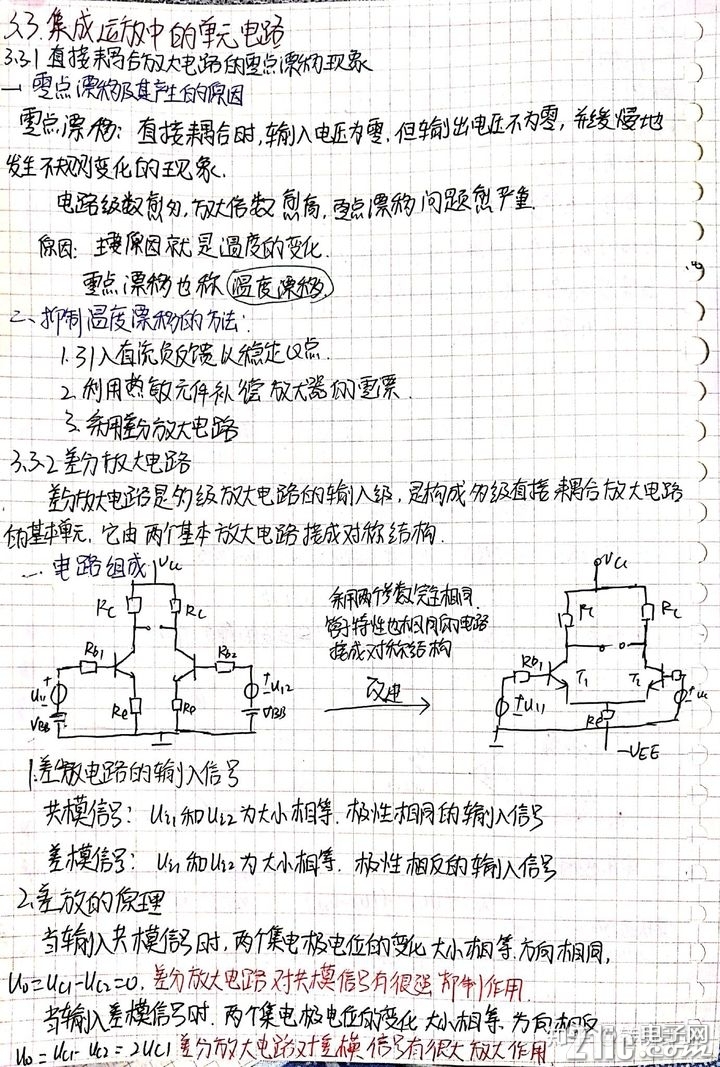 3.3 集成运放中的单元电路
3.3.1 直接耦合放大电路的零点漂移现象
一 零点漂移及其产生的原因
零点漂移：直接耦合时，输入电压为零，但输出电压不为零，并缓慢地
发生不规则变化的现象．
电路级数愈多，放大倍数愈高，零点漂移问题愈严重．
原因：主要原因就是温度的变化．
零点漂移也称 温度漂移．
二、抑制温度漂移的方法：
1. 引入直流负反馈以稳定Q点．
2. 利用热敏元件补偿放大器的零漂．
3. 采用差分放大电路
3.3.2 差分放大电路
差分放大电路是多级放大电路的输入级，是构成多级直接耦合放大电路
的基本单元，它由两个基本放大电路接成对称结构．
一、电路组成
Vcc
Rc
Rc
Rb1
Rb2
ui1
ui2
Re
Re
VBB
VBB
采用两个参数完全相同．
管子特性也相同的电路
接成对称结构
改进
Vcc
Rc
Rc
Rb1
T1
T2
ui1
Re
-VEE
1.差放电路的输入信号
共模信号：ui1和ui2为大小相等．极性相同的输入信号
差模信号：ui1和ui2为大小相等．极性相反的输入信号
2.差放的原理
当输入共模信号时，两个集电极电位的变化大小相等．方向相同，
uo=uc1-uc2=0．差分放大电路对共模信号有很强抑制作用．
当输入差模信号时．两个集电极电位的变化大小相等．方向相反
uo=uc1-uc2=2uc1 差分放大电路对差模信号有很大放大作用
21ic电子网